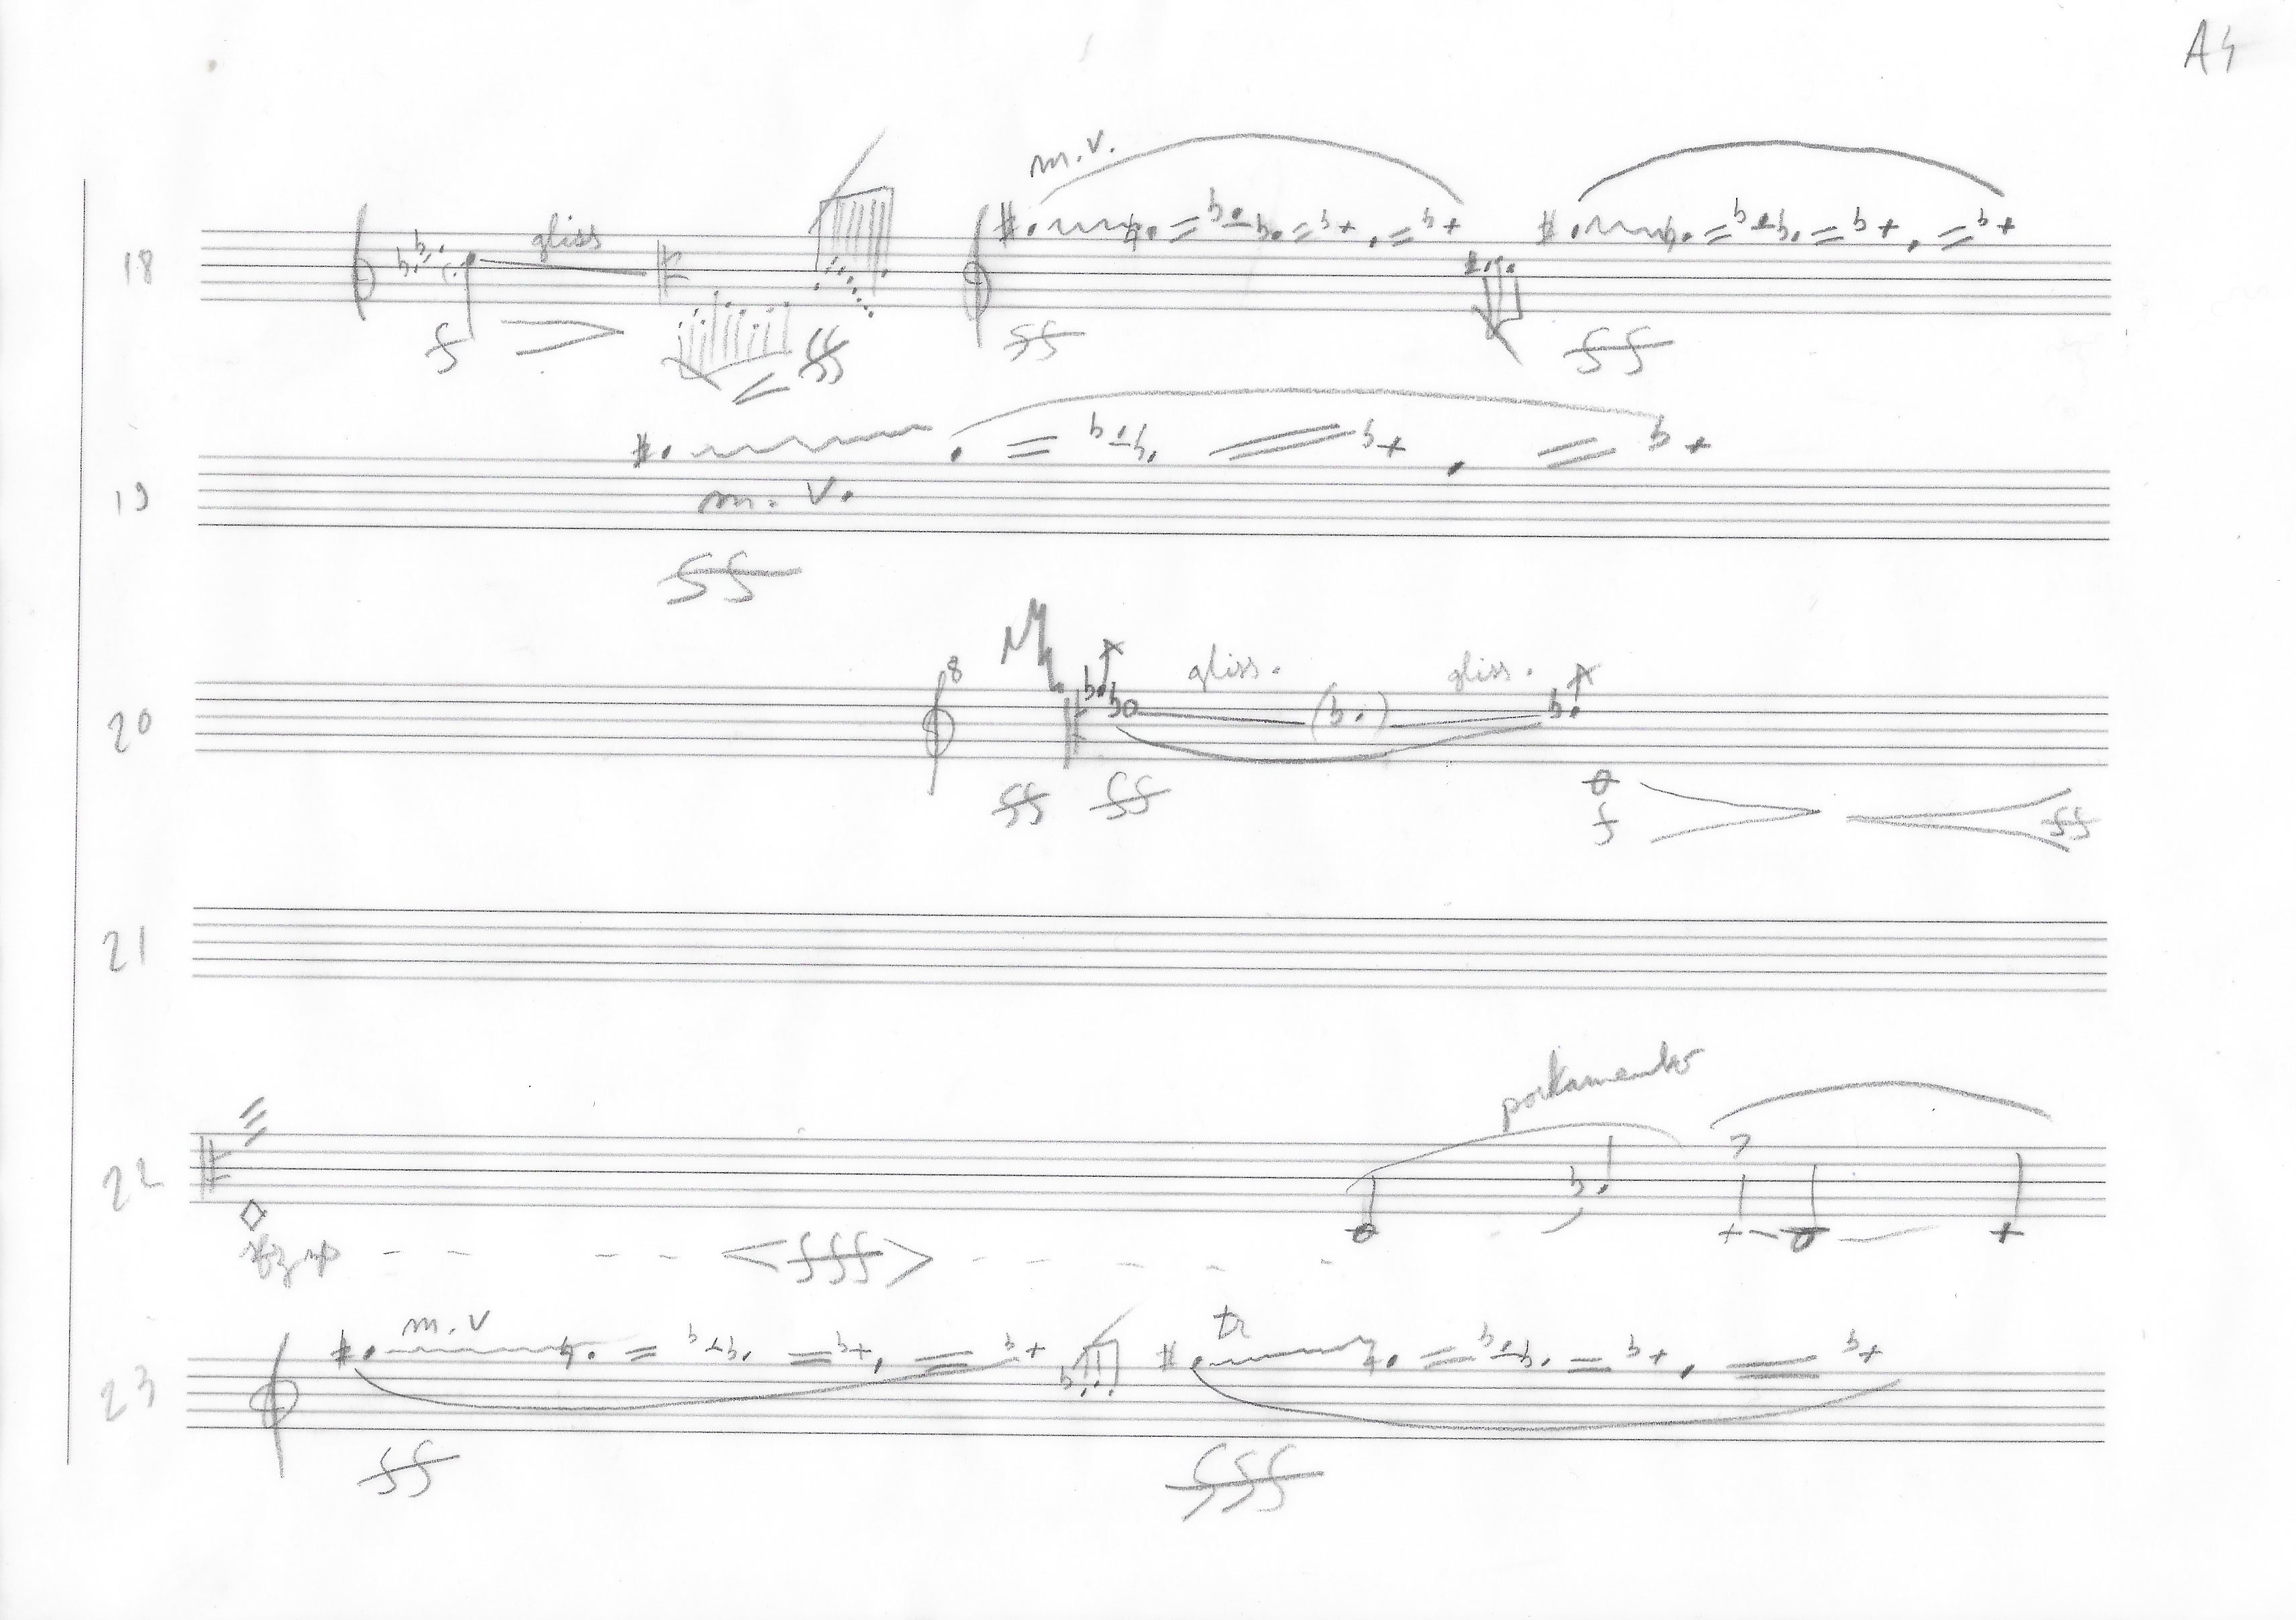 A4
m.v.
18
gliss
f
ff
ff
ff
19
m. v.
ff
8
gliss.
gliss.
20
ff
ff
f
ff
21
portamento
22
fff
m. v
tr
23
ff
fff